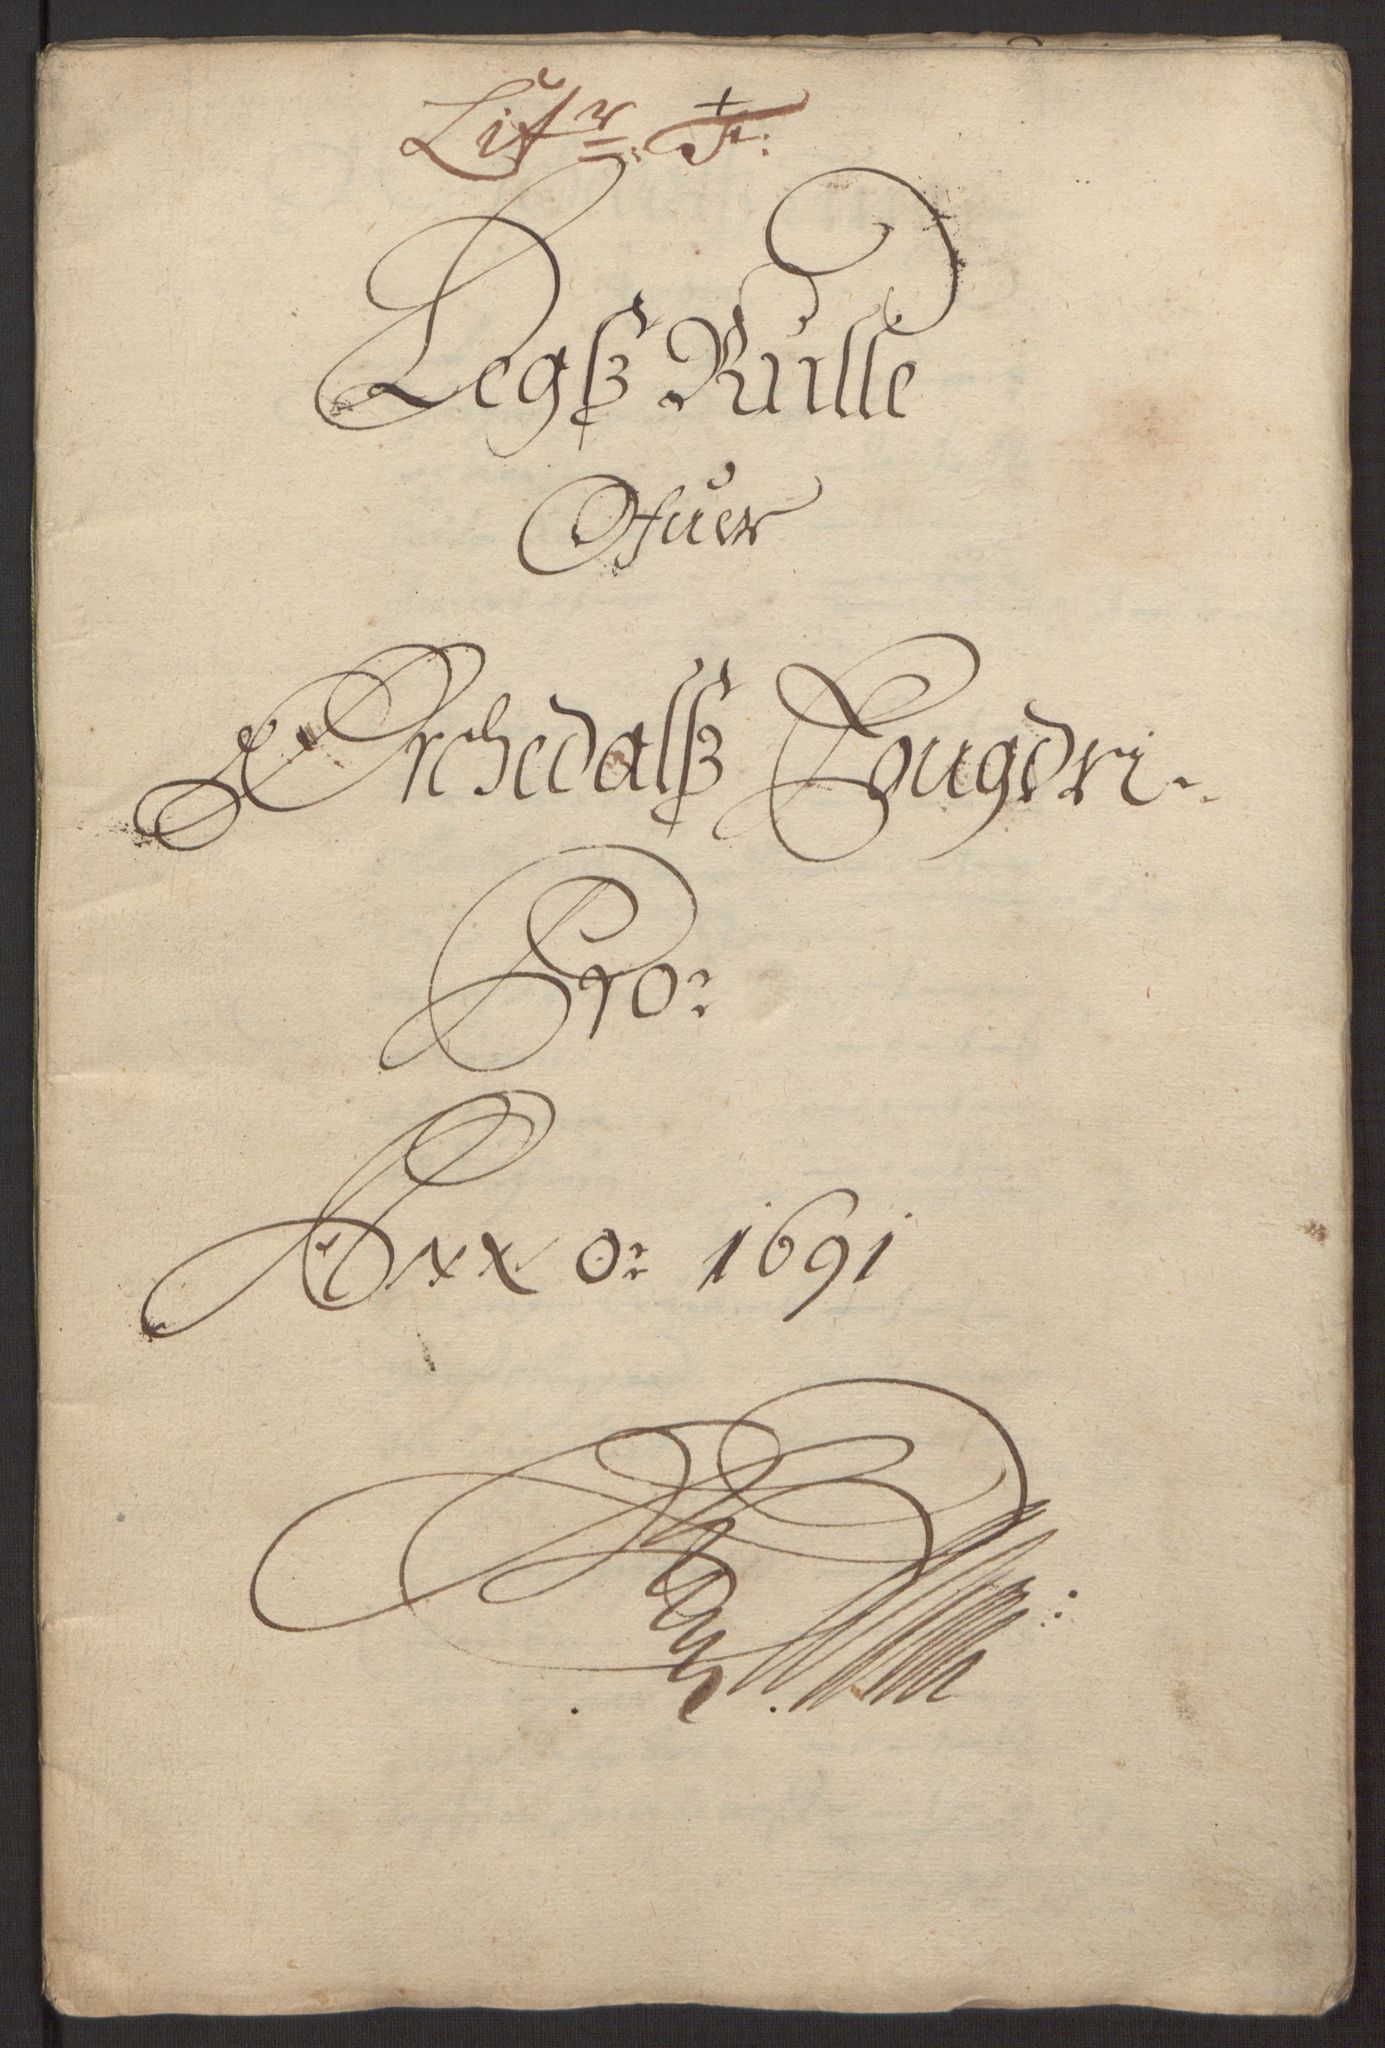 Litr: F:
Legß Rulle
Ofuer
Orchedalß Fougdri
Pro:
Anno: 1691